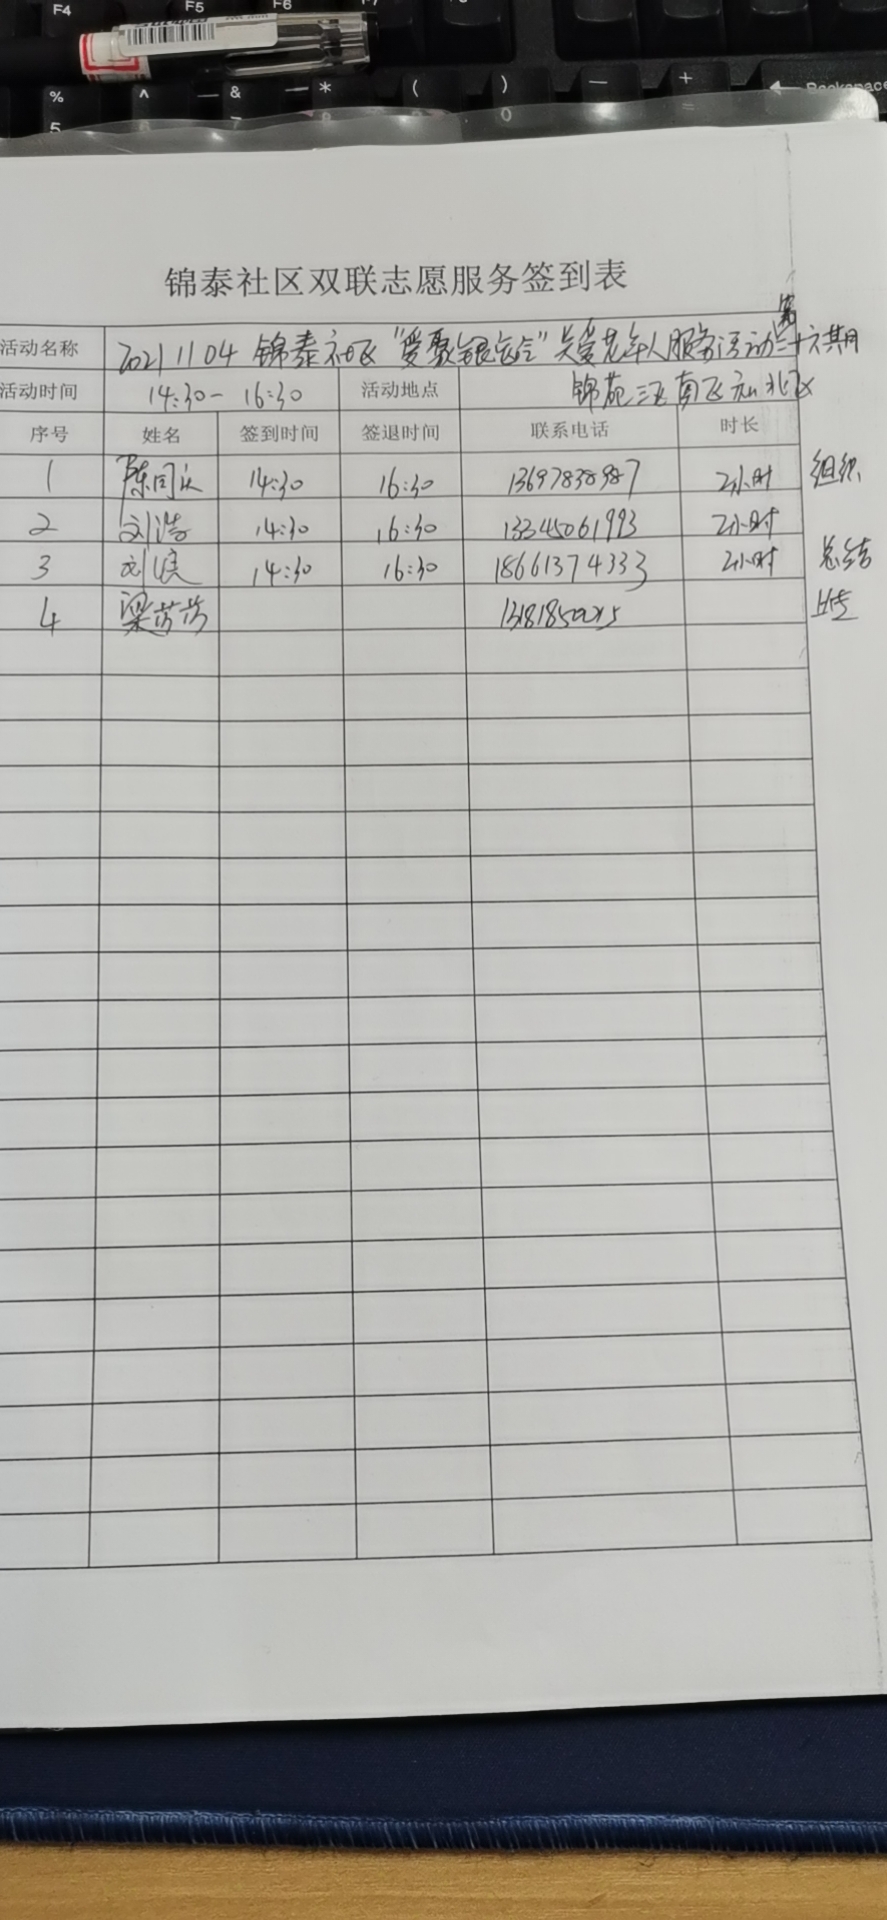 F4 F5 F6 F7
% ^ & * ( ) — +
5 0 = Backspace
锦泰社区双联志愿服务签到表
活动名称 20211104 锦泰社区“爱聚银龄”关爱老年人服务活动第三十六期
活动时间 14:30-16:30 活动地点 锦苑三区南区 北区
序号 姓名 签到时间 签退时间 联系电话 时长
1 14:30 16:30 13697838987 2小时 组织
2 刘浩 14:30 16:30 13345061993 2小时
3 刘滨 14:30 16:30 18661374333 2小时 总结
4 梁芳芳 上传